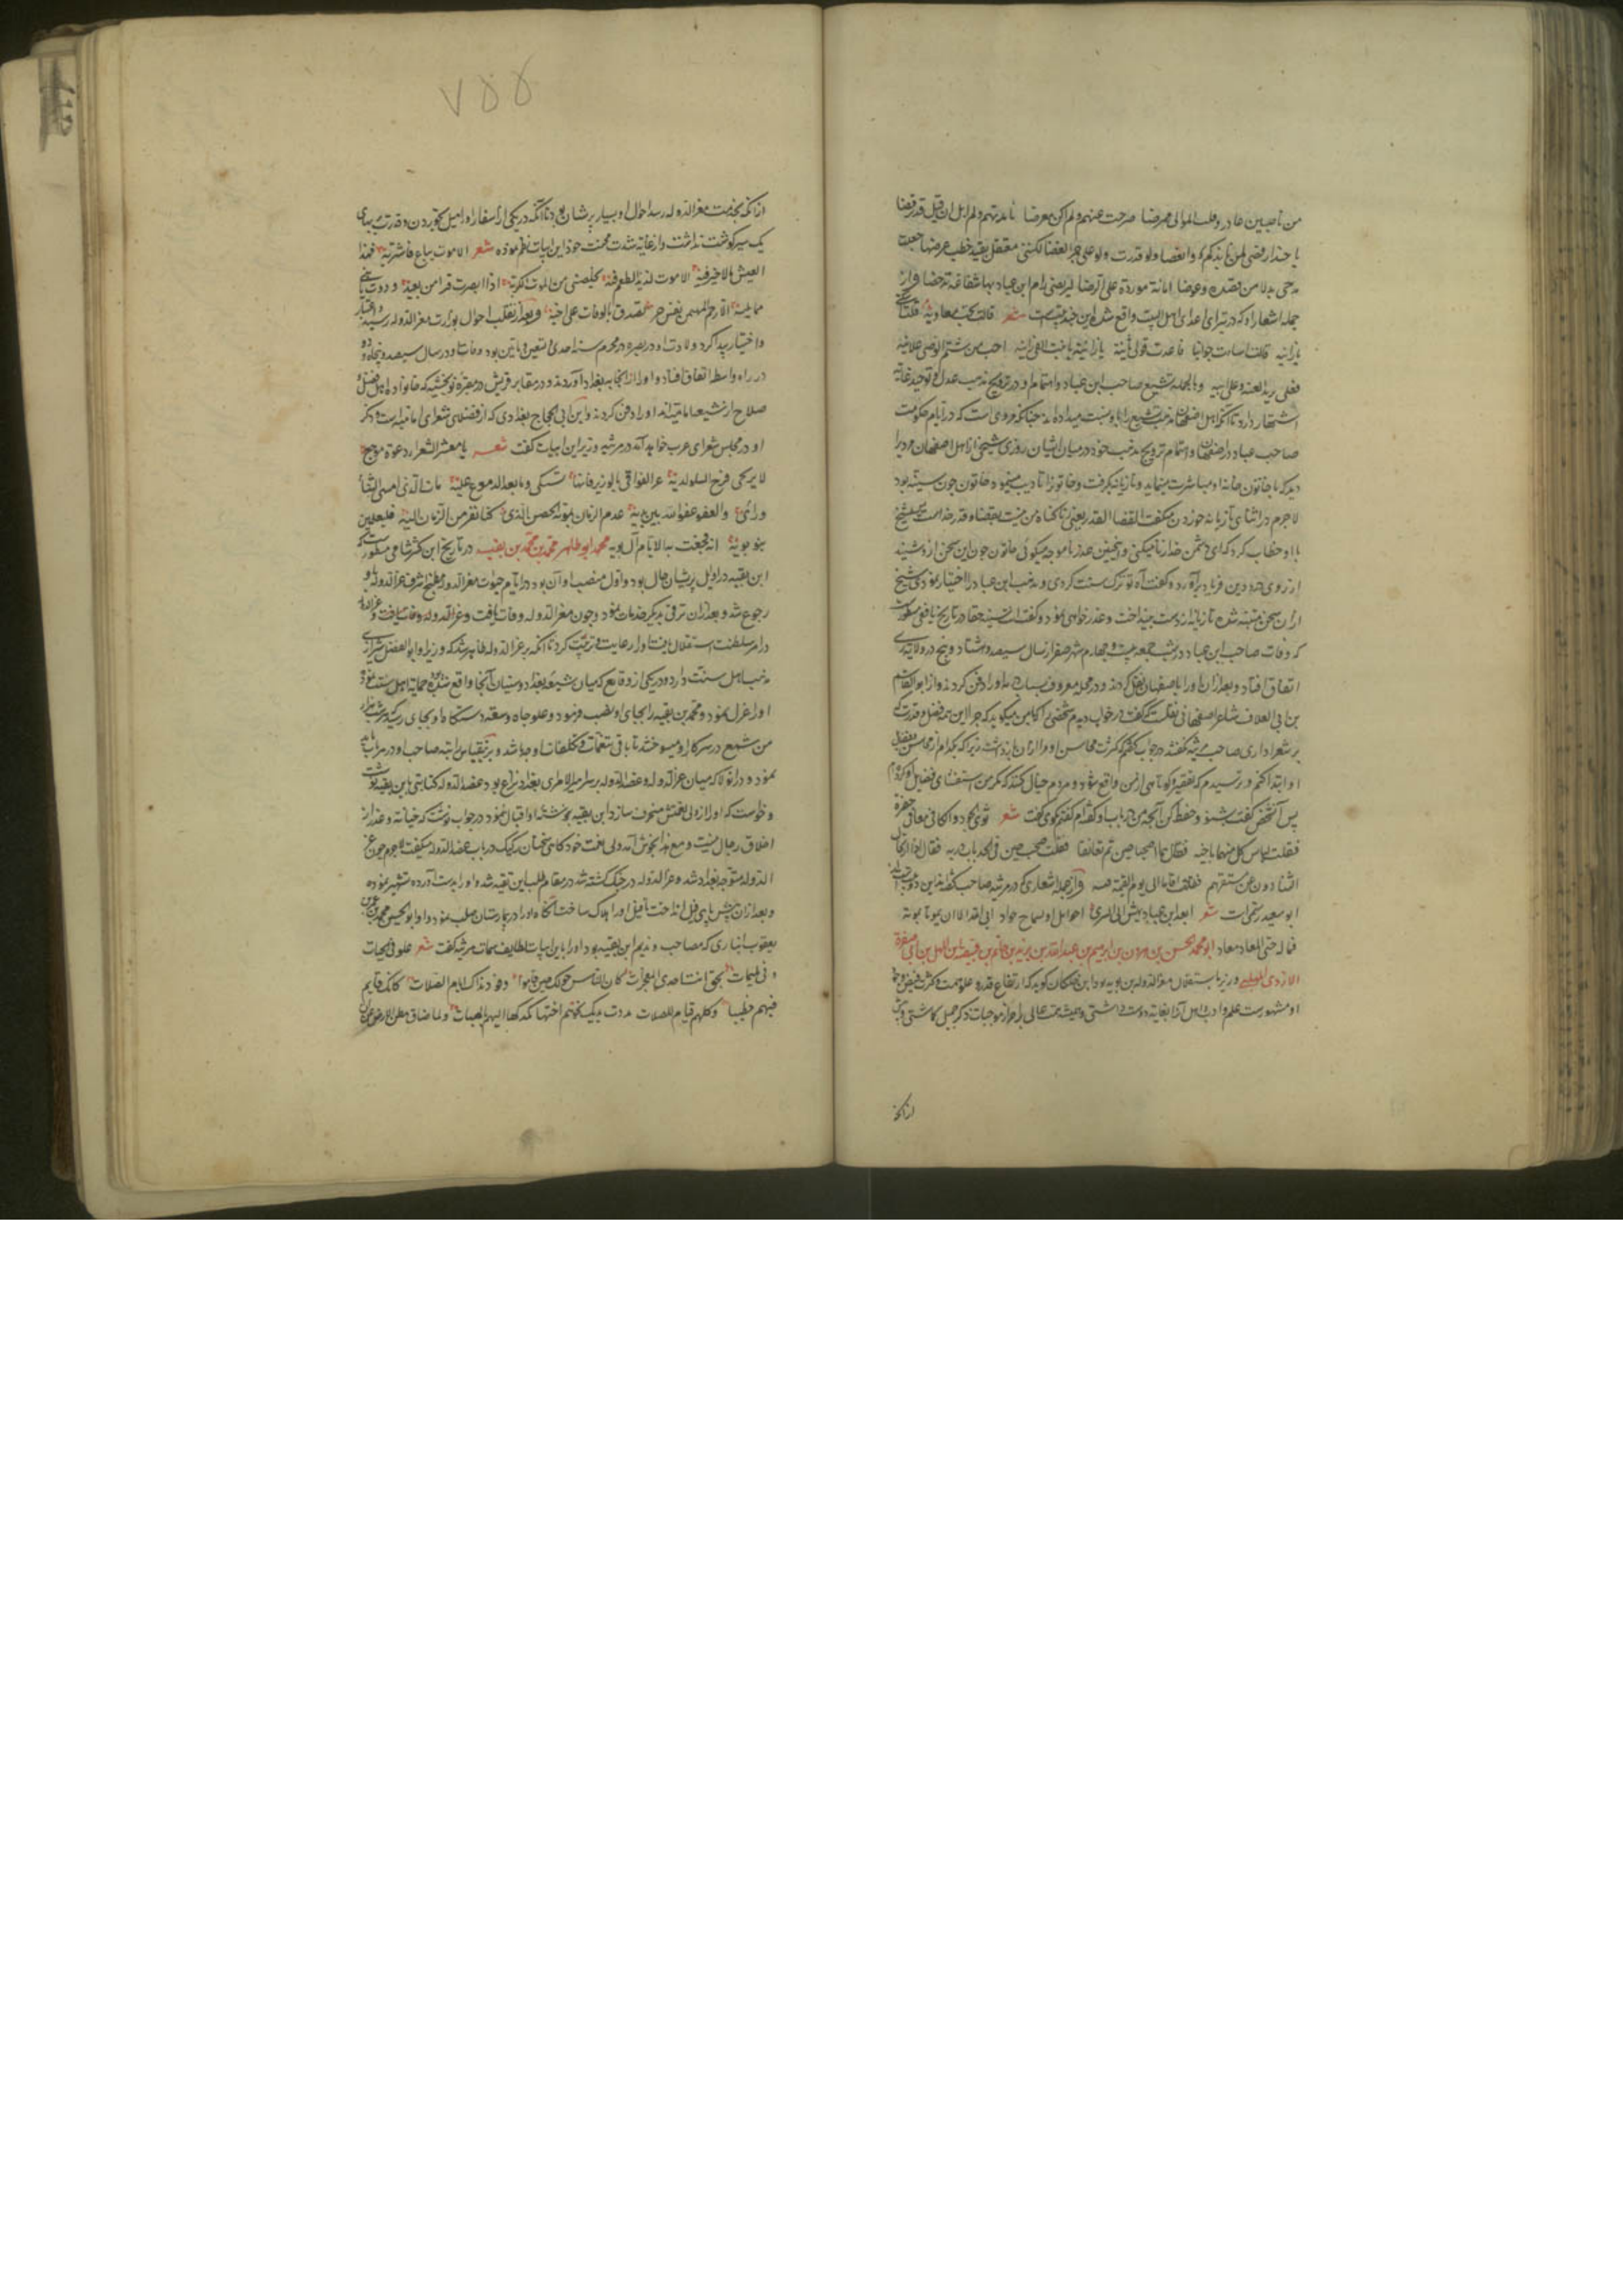 من ناصبین غادر وقلب الموالی ممرضا صرحت عنهم ولم اکن معرضا نابذتهم ولم ابل ان قیل قد رفضا
یا حبذا رفضی لمن نابذکم وابغضا ولو قدرت ولو علی جمر الغضا لکننی معتقل بقید خطب عرضا جعلت
مدحی بدلا من قصده وعوضا امانة موردة علی الرضا لیرتضی رام ابن عباد بها شفاعة لن تدحضا و از
جمله اشعار او که در تبرای اعدای اهل البیت واقع شده این چند بیت است شعر قالت تحب معاویة قلت
یا زانیه قالت اسات جوابنا فاعدت قولی ثانیة یا زانیة یا بنت الفی زانیه احب من شتم الوصی علانیة
فعلی یزید لعنة وعلی ابیه و بالجمله تشیع صاحب ابن عباد و اهتمام او در ترویج مذهب عدل و توحید غایة
اشتهار دارد تا آنکه اهل اصفهان مذهب تشیع را باو نسبت میداده اند چنانکه مروی است که در ایام حکومت
صاحب عباد در اصفهان و اهتمام ترویج مذهب خود در میان ایشان روزی شیخی از اهل اصفهان مرد را
دید که با خاتون خانه او مباشرت مینماید و تازیانه بگرفت و خاتون را تادیب مینمود و خاتون چون سنیه بود
لاجرم در اثنای تازیانه خوردن میگفت القضا القدر یعنی گناه من نیست بقضا و قدر خداست پس شیخ
با او خطاب کرد که ای دشمن خدا زنا میکنی و اینچنین عذر ناموجه میگوئی خاتون چون این سخن از او شنید
از روی درد دین فریاد برآورد و گفت آه تو ترک سنت کردی و مذهب ابن عباد را اختیار نمودی شیخ
از آن سخن متنبه شده تازیانه از دست بینداخت و عذرخواهی نمود و گفت انت سنیة حقا در تاریخ یافعی مسطورست
که وفات صاحب ابن عباد در شب جمعه بیست و چهارم شهر صفر از سال سیصد و هشتاد و پنج در ولایت ری
اتفاق افتاد و بعد از آن او را باصفهان نقل کردند و در محله معروف بباب دریه او را دفن کردند و از ابو القاسم
بن ابی العلاف شاعر اصفهانی نقلست که گفت در خواب دیدم شخصی را که با من میگوید که چرا با این همه فضل و قدرت که
بر شعر داری صاحب مرثیه نگفته در جواب گفتم که کثرت محاسن او مرا از آن بازداشت زیرا که
او ابتدا کنم و ترسیدم که تقصیر و کوتاهی از من واقع شود و مردم خیال کنند که مگر من استقصای فضایل او کرده ام
پس آنشخص گفت بشنو و حفظ کن آنچه من در باب او گفته ام گفتم بگوی گفت شعر ثوی الجود والکافی معا فی حفیرة
فقلت لیانس کل منهما باخیه فقال هما اصطحبا حیین ثم تعانقا فقلت ضجیعین فی لحد بباب دریه فقال اذا ارتحل
الثاوون عن مستقرهم فقلت اقاما الی یوم القیمة فیه و از جمله اشعاری که در مرثیه صاحب گفته اند این دو بیت
ابو سعید رستمی است شعر ابعد ابن عباد یهش الی السری اخو امل او یستماح جواد ابی الله الا ان یموتا بموته
فما له حتی المعاد معاد ابو محمد الحسن بن هرون بن ابرهیم بن عبد الله بن یزید بن حاتم بن قبیصة بن المهلب بن ابی صفرة
الازدی المهلبی وزیر باستقلال معز الدوله بن بویه بود ابن خلکان گوید که از ارتفاع قدر و علو همت و کثرت فیض
او مشهورست علم و ادب اهل آنرا بغایت دوست داشتی و همیشه همت عالی بر احراز موجبات ذکر جمیل گماشتی و پیش
از آنکه
۷۵۵
از آنکه بخدمت معز الدوله رسد احوال او بسیار پریشان بود تا آنکه در یکی از اسفار او را میل بخوردن و قدرت بر بهای
یک سیر گوشت نداشت و از غایة شدت محنت خود این ابیات نظم نموده شعر الا موت یباع فاشتریه فهذا
العیش ما لا خیر فیه الا موت لذیذ الطعم فیه یخلصنی من الموت الکریه اذا ابصرت قبرا من بعید وددت بانی
مما یلیه الا رحم المهیمن نفس حر تصدق بالوفات علی اخیه و بعد از تقلب احوال بوزارت معز الدوله رسید و اعتبار
و اختیار پیدا کرد و ولادت او در بصره در محرم سنه احدی و تسعین و مأتین بود و وفات او در سال سیصد و پنجاه و دو
در راه واسط اتفاق افتاد و او را از آنجا به بغداد آوردند و در مقابر قریش در مقبره نوبختیه که خانواده اهل فضل و
صلاح از شیعه امامیه اند او را دفن کردند و ابن ابی الحجاج بغدادی که از فضلای شعرای امامیه است و ذکر
او در مجلس شعرای عرب خواهد آمد در مرثیه وزیر این ابیات گفت شعر یا معشر الشعراء دعوة موجع
لا یرتجی فرح السلو لدیه عزوا القوافی بالوزیر فانها تبکی دما بعد الدموع علیه مات الذی امسی الثناء
وراءه والعفو عفو الله بین یدیه هدم الزمان بموته الحصن الذی کنا نفر من الزمان الیه فلیعلمن
بنو بویه انه فجعت به الایام آل بویه محمد ابو طاهر محمد بن محمد بن بقیه در تاریخ ابن کثیر شامی مسطورست که
ابن بقیه در اوایل پریشان حال بود و اول منصب او آن بود در ایام حیوت معز الدوله مطبخ شرف عز الدوله باو
رجوع شد و بعد از آن ترقی بدیگر خدمات نمود و چون معز الدوله وفات یافت و عز الدوله
در امر سلطنت استقلال یافت او را رعایت و تربیت کرد تا آنکه بر عز الدوله ظاهر شد که وزیر او ابو الفضل شیرازی
مذهب اهل سنت دارد و در یکی از وقایع که میان شیعه بغداد و سنیان آنجا واقع شده حمایة اهل سنت نموده
او را عزل نمود و محمد بن بقیه را بجای او نصب فرمود و علو جاه و سعة دستگاه او بجای رسید که
من شمع در سرکار او میسوختند تا باقی تنعمات و تکلفات او چها باشد و
نمود و در آنولا که میان عز الدوله و عضد الدوله بر سر امیر الامرائی بغداد نزاع بود عضد الدوله کتابتی باین بقیه نوشت
و خواست که او را از ولی نعمتش منحرف سازد ابن بقیه بنوشته او اقبال ننمود و در جواب نوشت که خیانة و غدر از
اخلاق رجال نیست و مع هذا بجوش آمد ولی نعمت خود گاهی سخنان رکیک در باب عضد الدوله میگفت لاجرم چون عز
الدوله متوجه بغداد شد و عز الدوله در جنگ کشته شد در مقام طلب ابن بقیه شد و او را بدست آورده تشهیر نموده
و بعد از آن در پیش پای فیل انداخت تا فیل او را هلاک ساخت آنگاه او را در بیمارستان صلب نمود و ابو الحسن محمد بن عمر بن
یعقوب انباری که مصاحب و ندیم ابن بقیه بود او را باین ابیات لطایف سمات مرثیه گفت شعر علو فی الحیات
و فی الممات بحق انت احدی المعجزات کان الناس حولک حین قاموا وفود نداک ایام الصلات کانک قایم
فیهم خطیبا وکلهم قیام للصلات مددت یدیک نحوهم احتفاء کمدکها الیهم بالهبات ولما ضاق بطن الارض عن ان